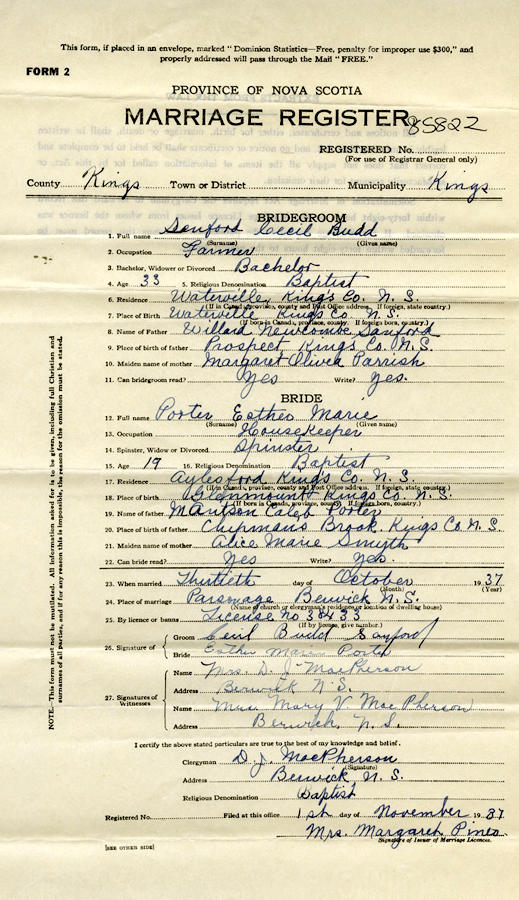 This form, if placed in an envelope, marked "Dominion Statistics—Free, penalty for improper use $300," and
properly addressed will pass through the Mail "FREE."
FORM 2
PROVINCE OF NOVA SCOTIA
MARRIAGE REGISTER 85822
REGISTERED No.
(For use of Registrar General only)
County Kings Town or District Municipality Kings
BRIDEGROOM
1. Full name Sanford Cecil Budd
(Surname) (Given name)
2. Occupation Farmer
3. Bachelor, Widower or Divorced Bachelor
4. Age 33 5. Religious Denomination Baptist
6. Residence Waterville, Kings Co. N. S.
(If in Canada, province, county and Post Office address. If foreign, state country.)
7. Place of Birth Waterville Kings Co. N. S.
(If born in Canada, province, county. If foreign born, country.)
8. Name of Father Willard Newcombe Sanford
9. Place of birth of father Prospect Kings Co. N. S.
10. Maiden name of mother Margaret Olivea Parrish
11. Can bridegroom read? Yes Write? Yes.
BRIDE
12. Full name Porter Esther Marie
(Surname) (Given name)
13. Occupation Housekeeper
14. Spinster, Widow or Divorced Spinster
15. Age 19 16. Religious Denomination Baptist
17. Residence Aylesford Kings Co. N. S.
(If in Canada, province, county and Post Office address. If foreign, state country.)
18. Place of birth Glenmount Kings Co. N. S.
(If born in Canada, province, county. If foreign born, country.)
19. Name of father Caleb Porter
20. Place of birth of father Chipmans Brook, Kings Co N. S.
21. Maiden name of mother Alice Marie Smyth
22. Can bride read? Yes Write? Yes.
23. When married Thirtieth day of October 1937
(Month) (Year)
24. Place of marriage Parsonage Berwick N. S.
(Name of church or clergyman's residence or location of dwelling house)
25. By licence or banns License no 38433
(If by license, give number.)
26. Signature of Groom Cecil Budd Sanford
Bride Esther Marie Porter
27. Signatures of Witnesses
Name Mrs. D. J. MacPherson
Address Berwick N. S.
Name Miss Mary V MacPherson
Address Berwick, N. S.
I certify the above stated particulars are true to the best of my knowledge and belief.
Clergyman D. J. MacPherson
(Signature)
Address Berwick N. S.
Religious Denomination Baptist
Registered No. Filed at this office 1st day of November 1937
Mrs. Margaret Pineo
Signature of Issuer of Marriage Licences.
[SEE OTHER SIDE]
NOTE.—This form must not be mutilated. All information asked for is to be given, including full Christian and
surnames of all parties, and if for any reason this is impossible, the reason for the omission must be stated.